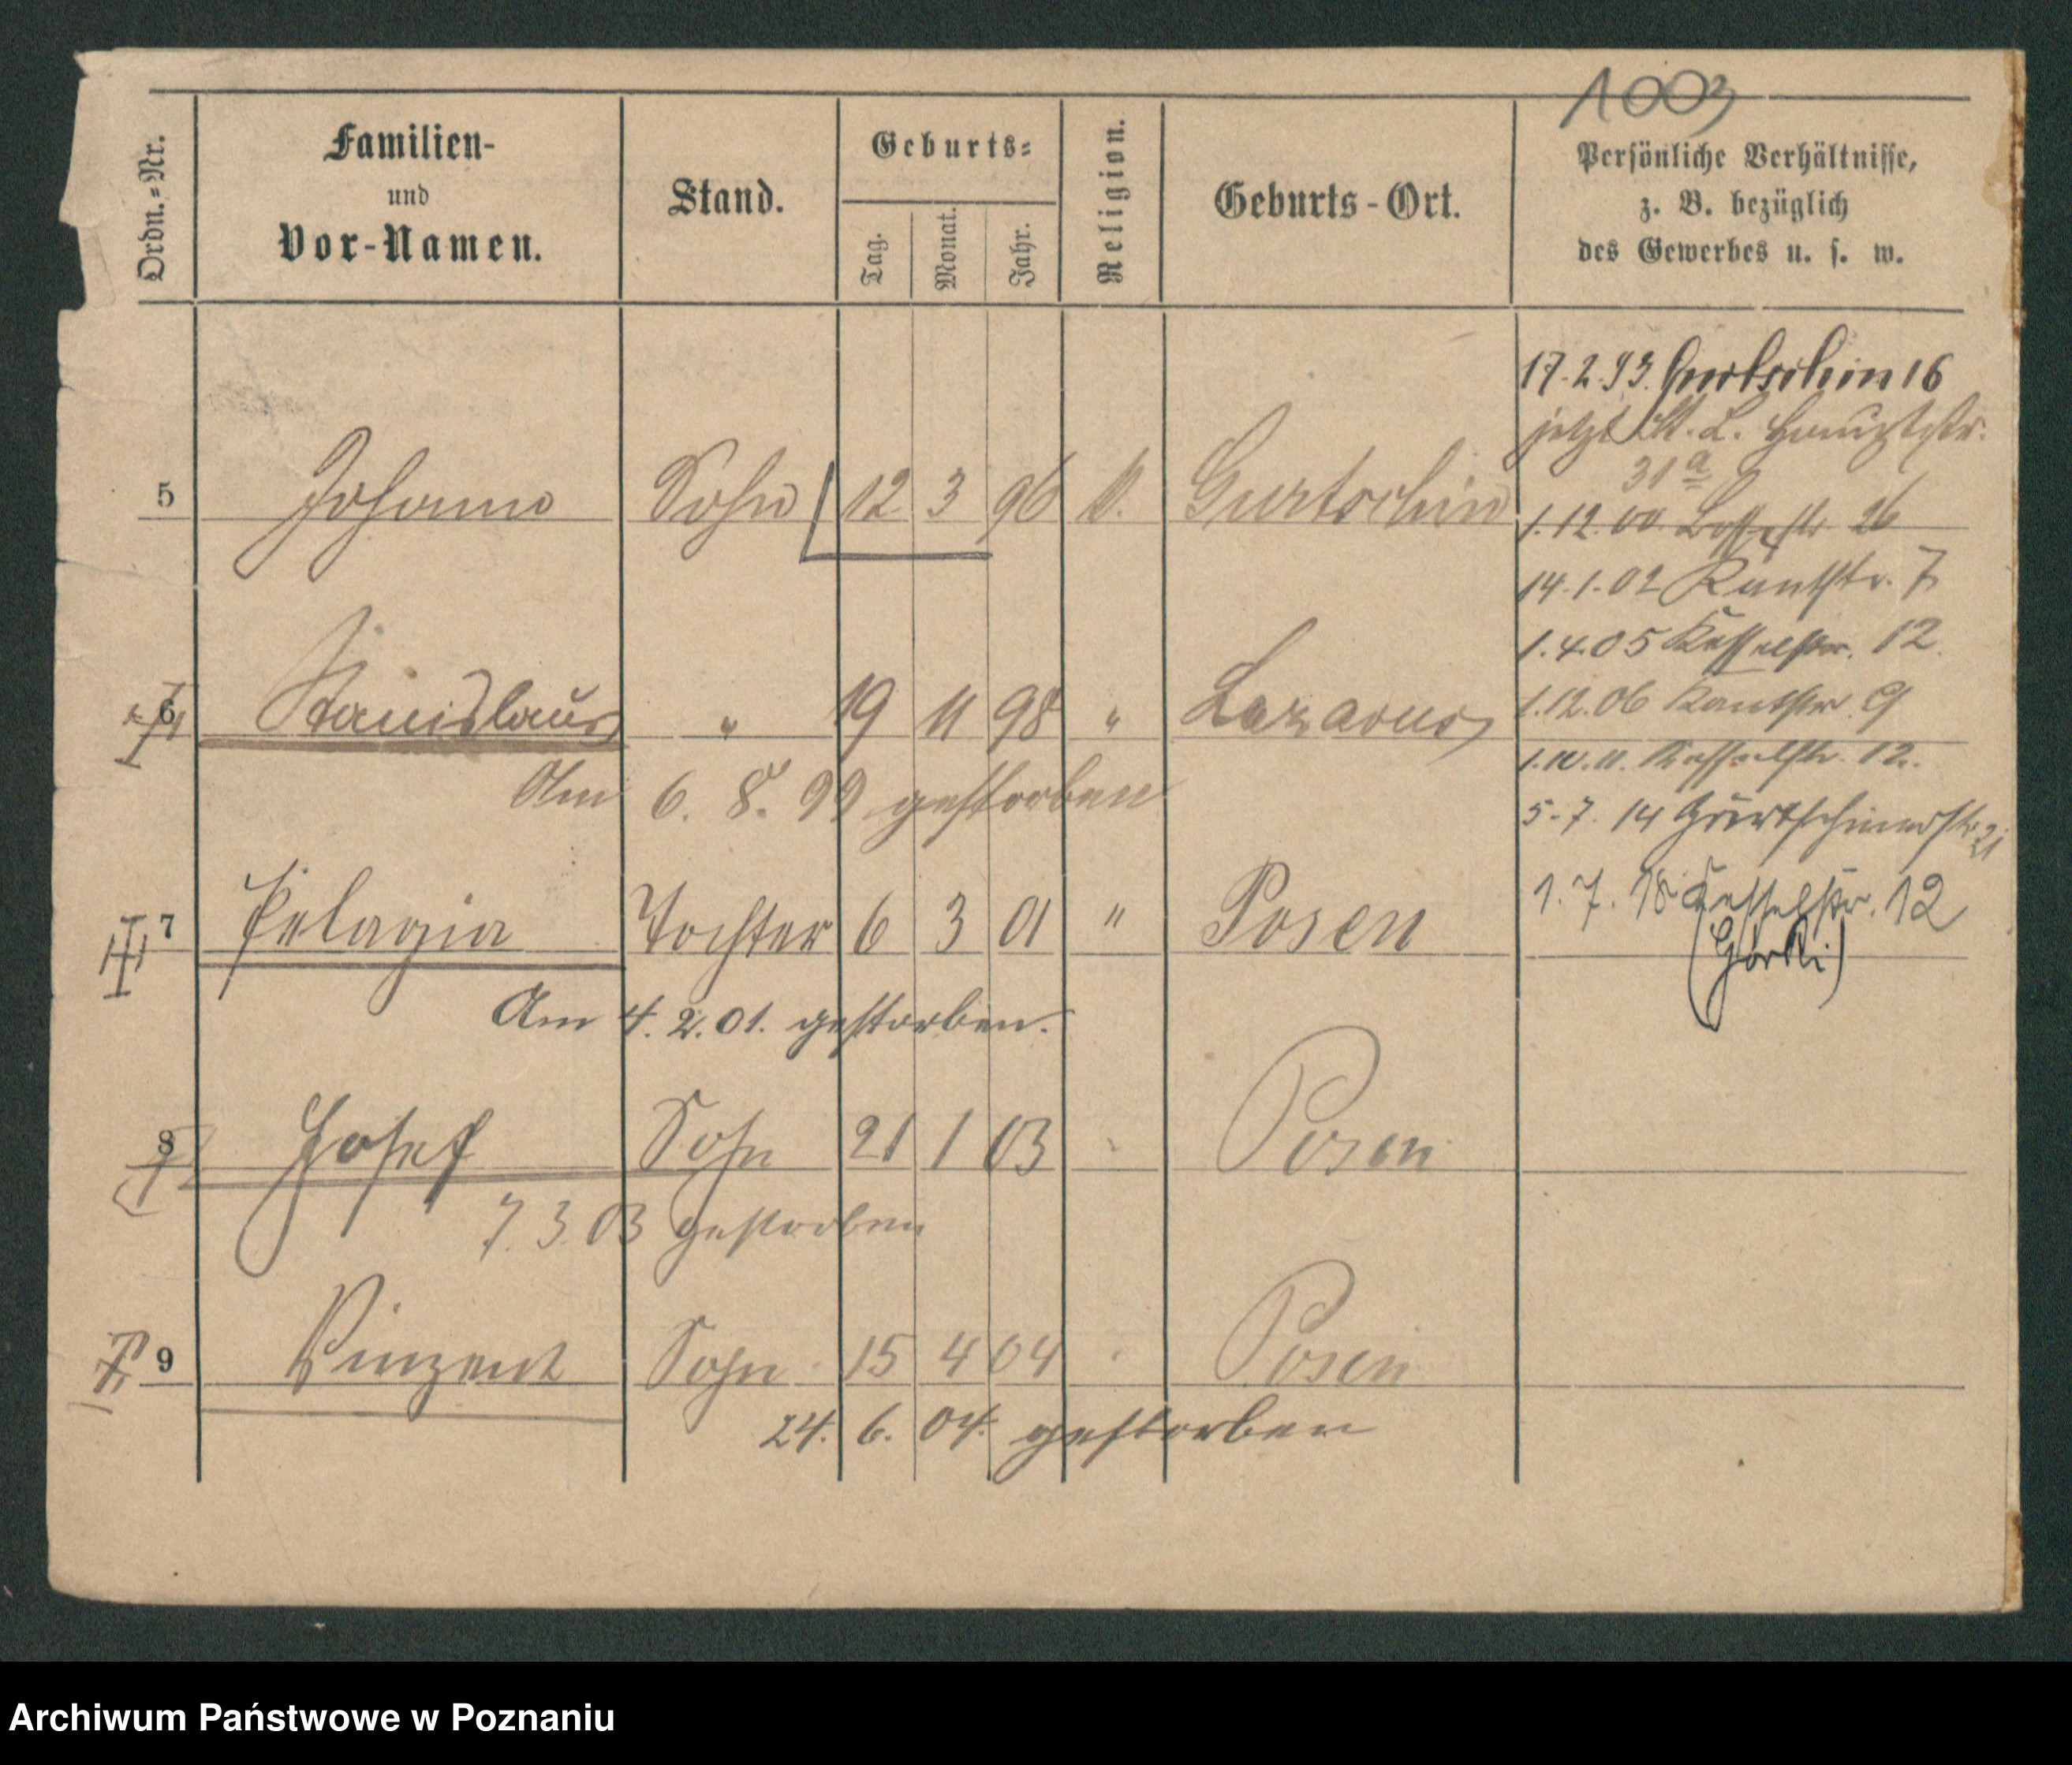 1003
Ordn.=Nr.
Familien-
und
Vor-Namen.
Stand.
Geburts=
Tag.
Monat.
Jahr.
Religion.
Geburts-Ort.
Persönliche Verhältnisse,
z. B. bezüglich
des Gewerbes u. s. w.
17.2.93. Gurtschin 16
jetzt St. L. Hauptstr.
31a
5 Johann Sohn 12 3 96 k. Gurtschin
1.12.00 26
14.1.02 Kantstr. 7
1.4.05 Kesselstr. 12.
6 Stanislaus " 19 11 98 " Lazarus
1.12.06 Kantstr. 9
1.10.11. Kesselstr. 12.
Am 6. 8. 99 gestorben
5.7.14 Gurtschinerstr. 21
7 Pelagia Tochter 6 3 01 " Posen
1.7.18 Kesselstr. 12
(Górski)
Am 4.2.01. gestorben.
8 Josef Sohn 21 1 03 Posen
7.3.03 gestorben
9 Vinzent Sohn 15 4 04 Posen
24. 6. 04. gestorben
Archiwum Państwowe w Poznaniu